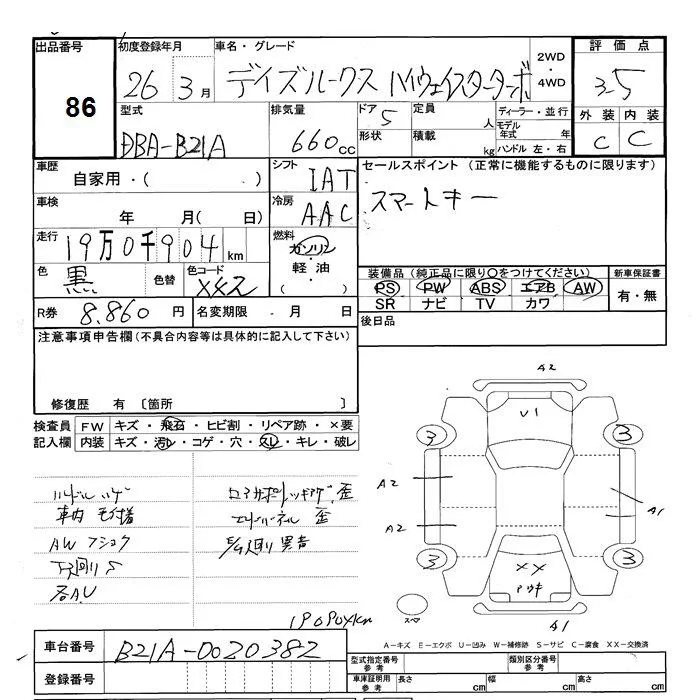 出品番号
86
初度登録年月
26 3 月
車名・グレード
デイズルークス ハイウェイスターターボ
2WD
・
4WD
評価点
3.5
型式
DBA-B21A
排気量
660 cc
ドア 5
定員
人
形状
積載
kg
ディーラー・並行
モデル年式 年
ハンドル 左・右
外装 内装
C C
車歴
自家用・( )
シフト
IAT
セールスポイント (正常に機能するものに限ります)
スマートキー
車検
年 月( 日)
冷房
AAC
走行
19万0千904 km
燃料
ガソリン
軽・油
( )
色
黒
色替
色コード
X42
装備品(純正品に限り○をつけてください)
新車保証書
PS PW ABS エアB AW
SR ナビ TV カワ
有・無
R券 8.860 円
名変期限 ・ 月 日
後日品
注意事項申告欄(不具合内容等は具体的に記入して下さい)
修復歴 有 〔箇所 〕
検査員記入欄
FW キズ・飛石・ヒビ割・リペア跡・×要
内装 キズ・汚レ・コゲ・穴・スレ・キレ・破レ
ハンドルハゲ
車内モノ増
AWフショク
下廻りS
各AU
エンドパネル 歪
E/G廻り異音
190904km
A2
U1
3
3
A2
A2
A1
3
3
XX
アウキ
スペア
A1
A-キズ E-エクボ U-凹み W-補修跡 S-サビ C-腐食 XX-交換済
車台番号 B21A-0020382
登録番号
型式指定番号
類別区分番号
車庫証明用参考
長さ cm
幅 cm
高さ cm